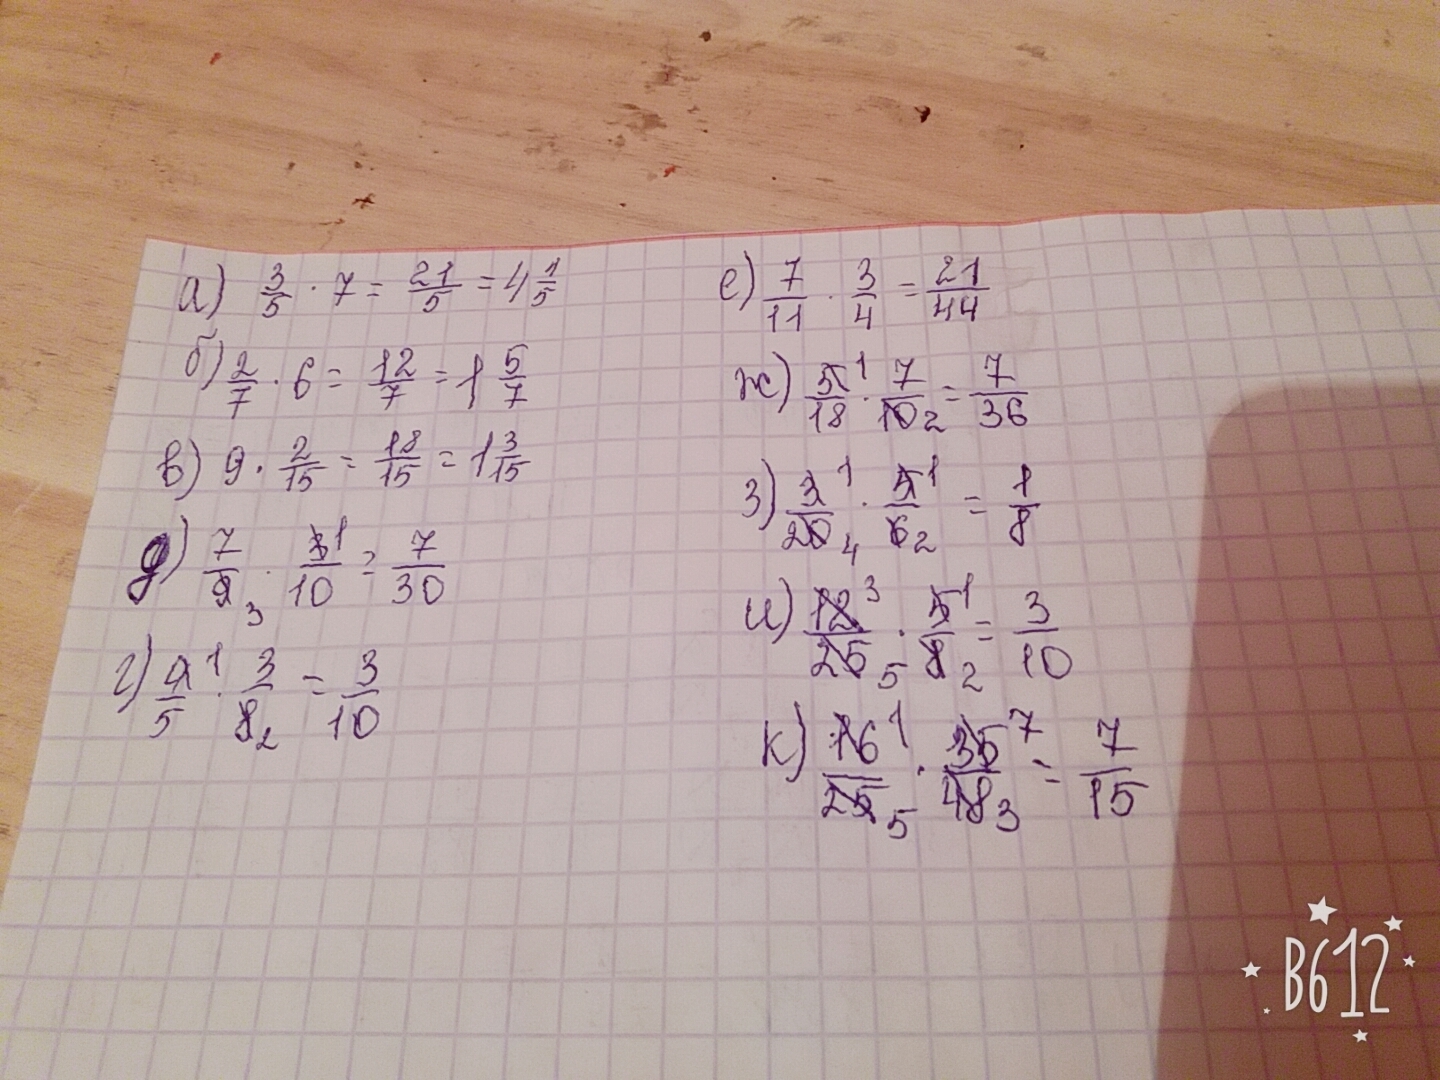 а) 3/5 · 7 = 21/5 = 4 1/5
б) 2/7 · 6 = 12/7 = 1 5/7
в) 9 · 2/15 = 18/15 = 1 3/15
д) 7/9 3 · 3 1/10 = 7/30
г) 4 1/5 · 3/8 2 = 3/10
е) 7/11 · 3/4 = 21/44
ж) 5 1/18 · 7/10 2 = 7/36
з) 3 1/20 4 · 5 1/6 2 = 1/8
и) 12 3/25 5 · 5 1/8 2 = 3/10
к) 16 1/25 5 · 35 7/48 3 = 7/15
B612